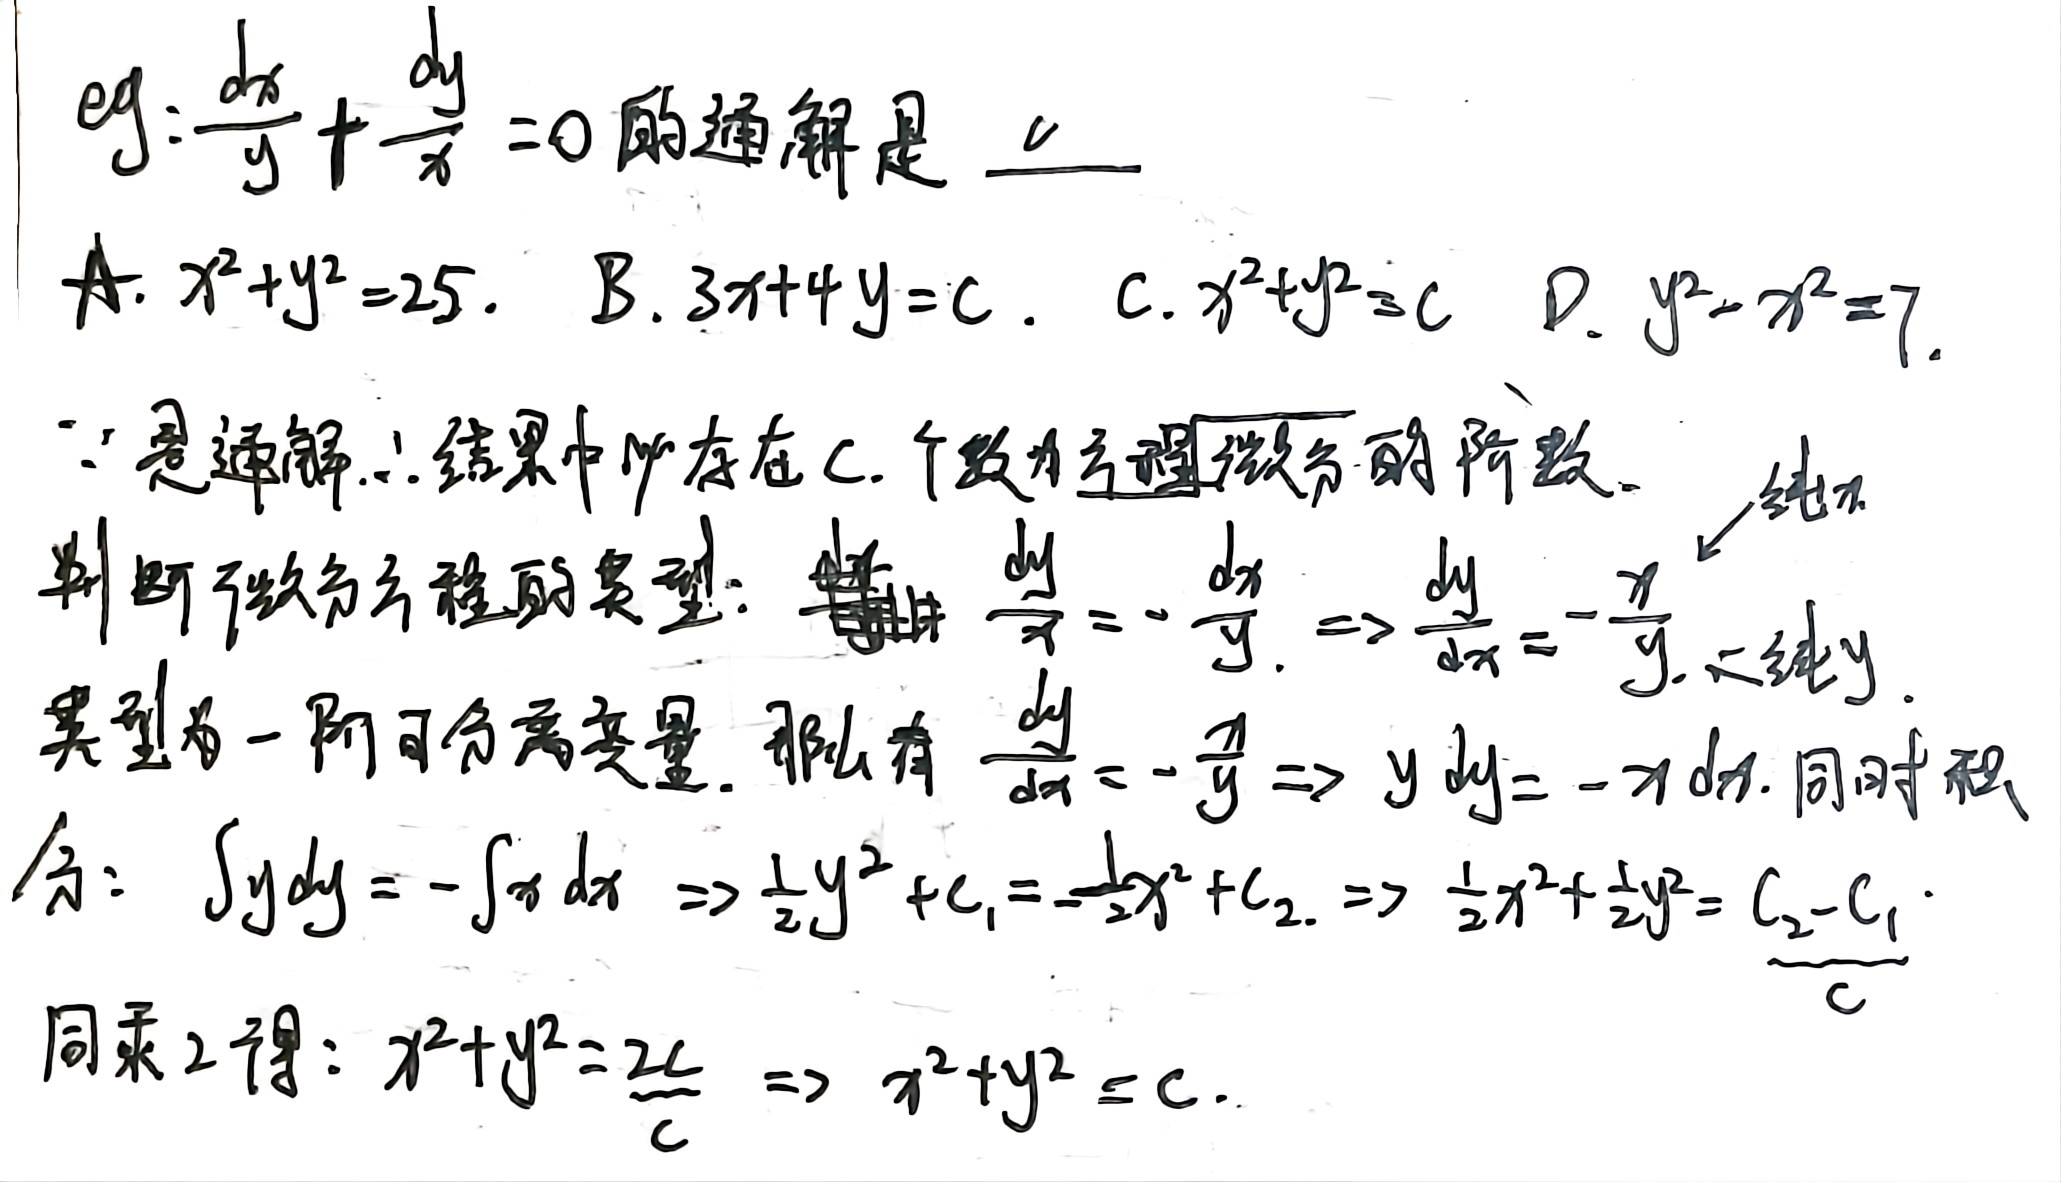 eg: dx/y + dy/x = 0 的通解是 C
A. x²+y²=25. B. 3x+4y=C. C. x²+y²=C D. y²-x²=7.
∵是通解.∴结果中必存在C.个数为方程微分的阶数.
纯x
判断微分方程的类型: dy/x = - dx/y. => dy/dx = - x/y. ← 纯y.
类型为一阶可分离变量.那么有 dy/dx = - x/y => y dy = -x dx. 同时积
分: ∫y dy = -∫x dx => 1/2 y² + C₁ = -1/2 x² + C₂. => 1/2 x² + 1/2 y² = C₂-C₁.
C
同乘2得: x²+y²=2C => x²+y²=C.
C